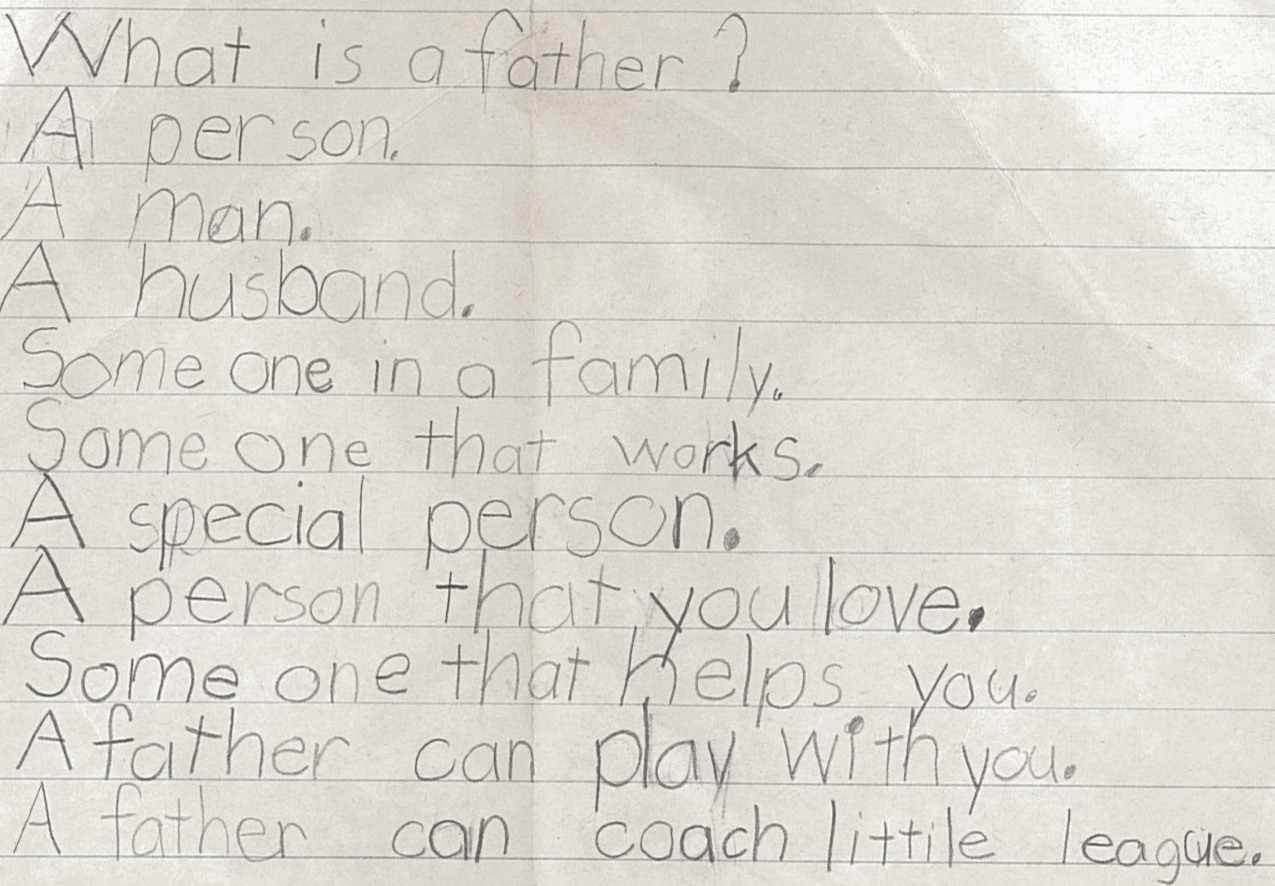 What is a father?
A person.
A man.
A husband.
Some one in a family.
Some one that works.
A special person.
A person that you love.
Some one that helps you.
A father can play with you.
A father can coach littile league.